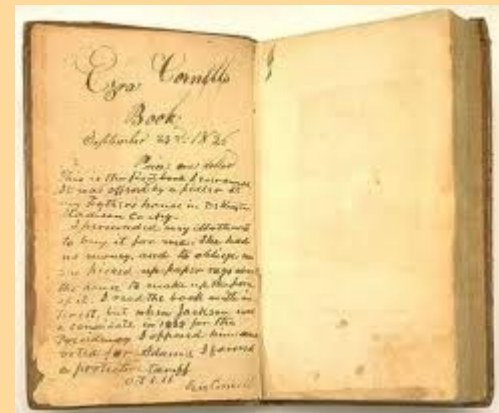 Ezra Cornells
Book
September 23rd 1826
Price one dollar
This is the first book I ever owned
It was offered by a pedler at
my Fathers house in DeRuyter
Madison Co NY.
I persuaded my Mother
to buy it for me. She had
no money, and to oblige
me picked up paper rags about
the house to make up the price
of it. I read the book with in
terest, but when Jackson was
a candidate in 1828 for the
Presidency I opposed him and
voted for Adams I favored
a protective tariff
Ezra Cornell